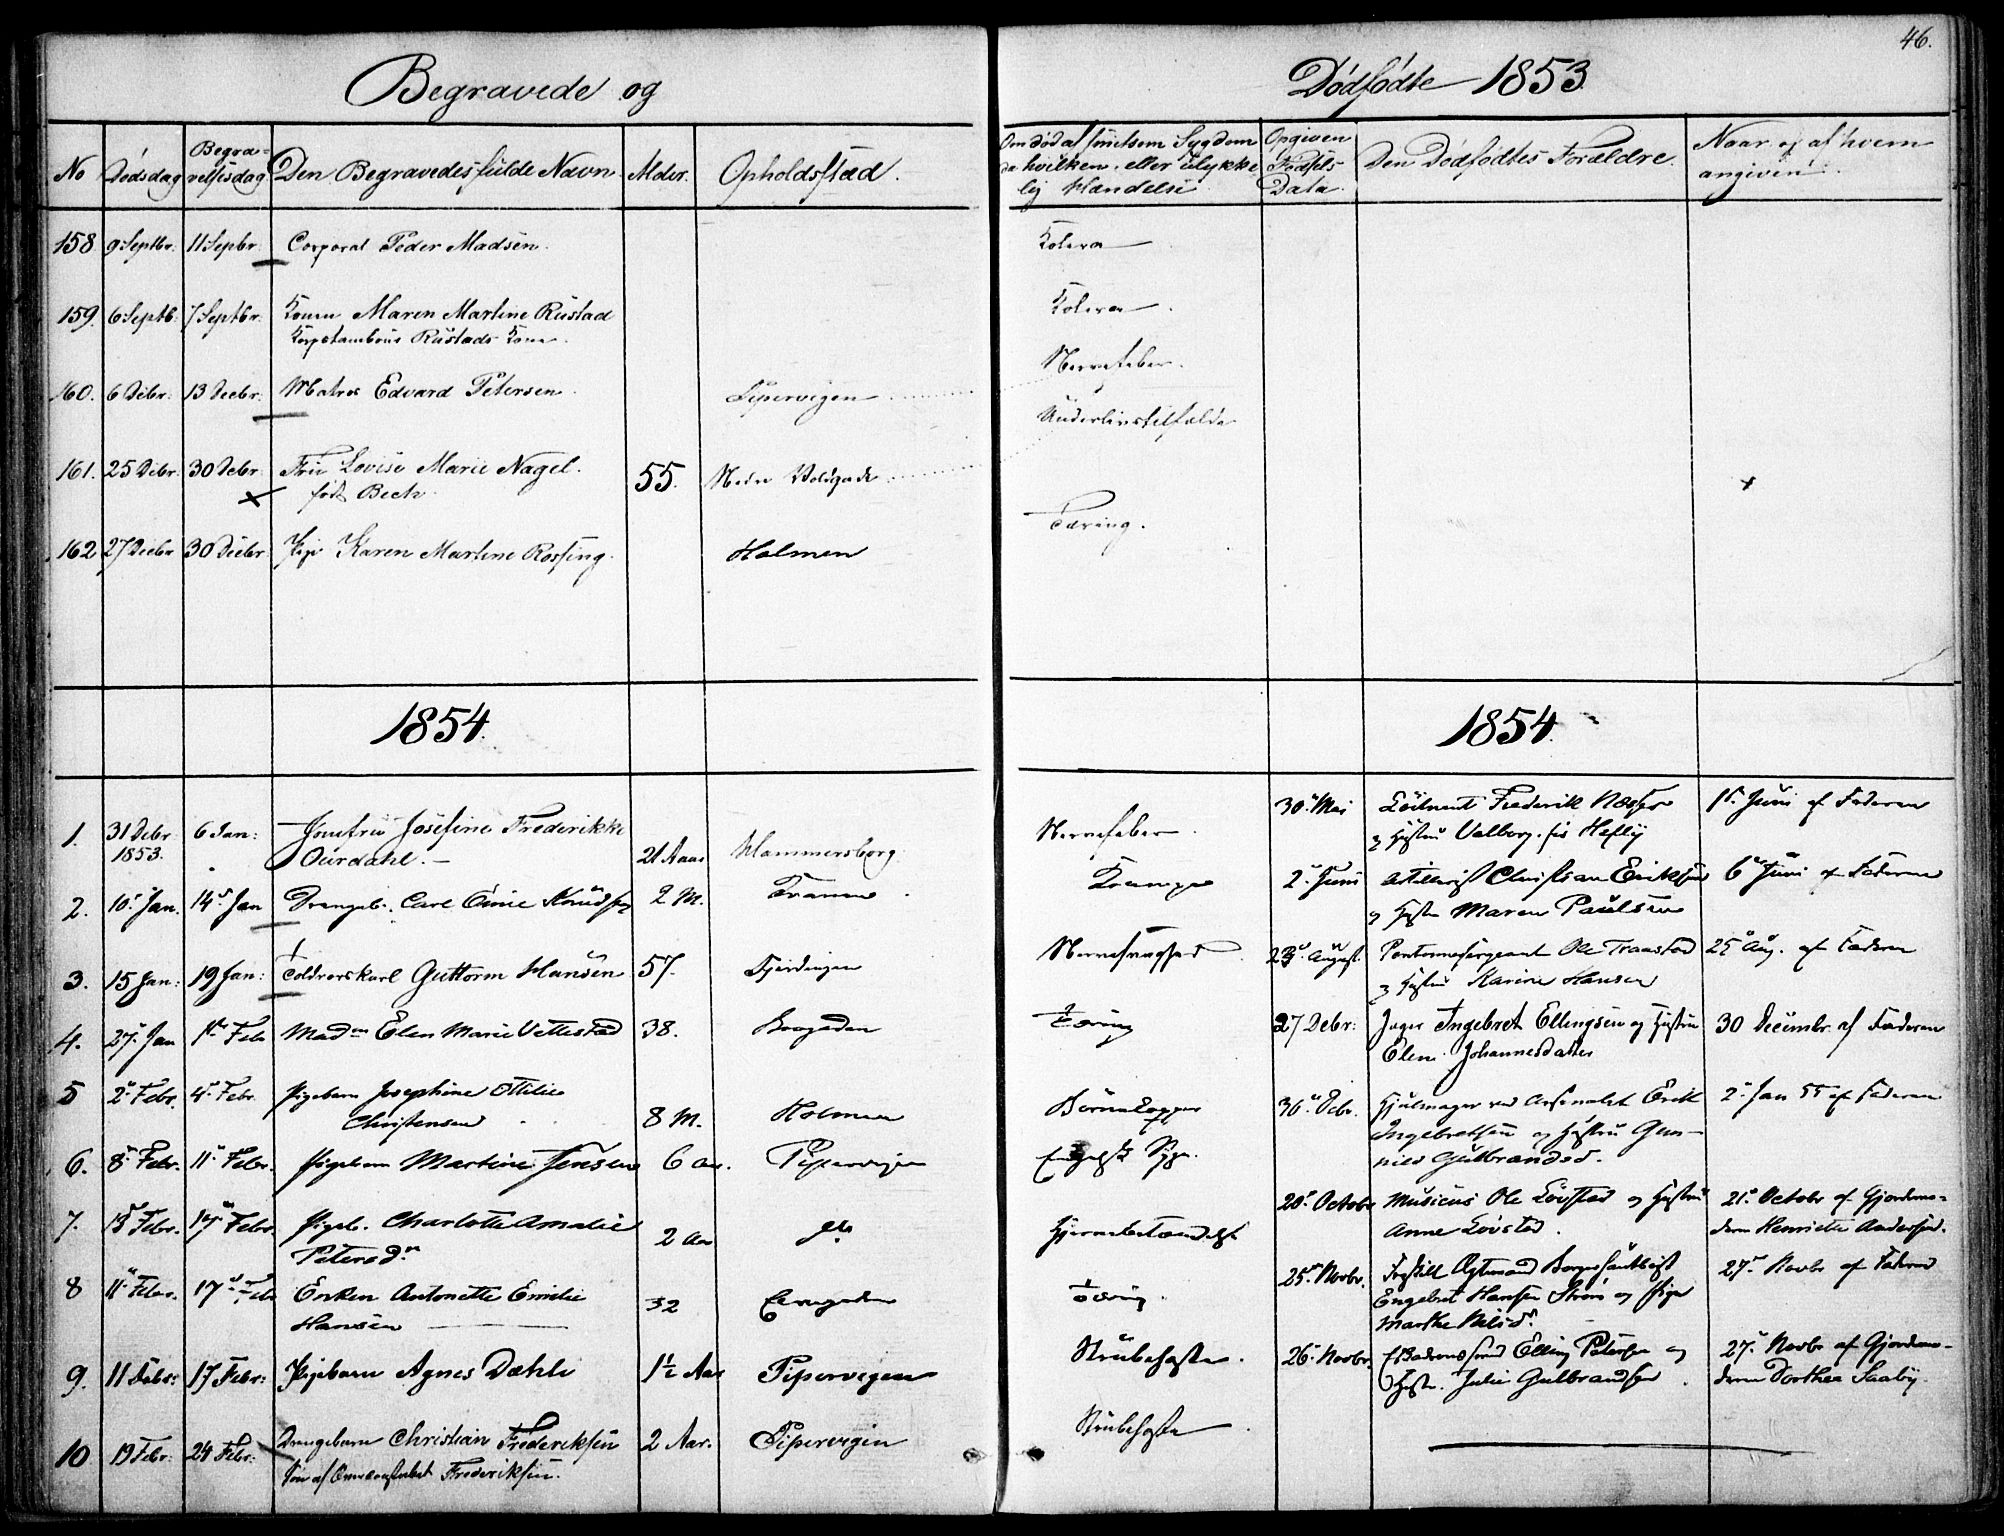 46.
Begravede og
Dødfødte 1853
No Dødsdag Begravelsesdag Den Begravedes fulde Navn Alder. Opholdsstæd.
Om død af smitsom Sygdom da hvilken, eller ulykkelig Hændelse Opgiven Fødsels Data. Den Dødfødtes Forældre. Naar og af hvem angiven.
158 9 Septbr. 11 Sepbr. Corporal Peder Madsen. Kolera
159. 6 Septb. 7 Septbr. Konen Maren Martine Rustad Kolera
Rustads Kone.
160. 6 Debr. 13 Decbr. Matros Edvard Petersen. Pipervigen Nervefeber.
161. 25 Debr. 30 Debr. Fru Lovise Marie Nagel. 55. Nedre Voldgade Underlivstilfælde
født Bech.
162 27 Decbr 30 Decbr. Pige Karen Martine Rossing. Holmen Tæring.
1854.
1854.
1. 31 Debr 1853. 6 Jan: Jomfru Josefine Frederikke 21 Aar Hammersborg. Nervefeber.
Ourdahl.
2. 10. Jan. 14 Jan Drengeb. Carl Knudsen 2 M. Krampe
3. 15 Jan: 19 Jan: Guttorm Hansen 57. Fjerdingen
4. 27. Jan 1 Feb Mad Elen Marie Vettestad 38. Tæring
5 2 Febr. 4 Febr. Pigebarn Josephine Ottilie
Christensen 8 M. Holmen
6. 8 Febr. 11 Febr. Pigebarn Martine Jensen 6 Aar. Pipervigen Engelsk Syge.
7. 15 Febr. 17 Febr. Pigeb. Charlotte Amalie
Petersd. 2 Aar do Hjernebetændelse
8 11 Febr. 17 Febr Enken Antonette Emilie
Hansen 32 Tæring.
9. 11 Febr: 17 Febr: Pigebarn Agnes Dæhli 1½ Aar Pipervigen Strubehoste.
10 19 Febr: 24 Febr: Drengebarn Christian Frederiksen 2 Aar. Pipervigen Strubehoste
Søn af Frederiksen.
30 Mai Frederik Næsser 1 Juni af Faderen
og Hustru Valborg
2 Juni Artillerist Christian Eriksen 6 Juni af Faderen
og Hustru Maren Paulsen
23 August Ole Traastad 25 Aug. af Faderen
og Hustru Karine Hansen
27 Debr: Jæger Ingebret Ellingsen og Hustru 30 Decembr. af Faderen
Elene Johannesdatter
30 Debr. Hjulmager ved Arsenalet Erik 2 Jan 55 af Faderen
Ingebretsen og Hustru Gunnild
Gulbrandsd.
20 Octobr Musicus Ole Løvstad og Hustru 21 Octobr af Gjordemo-
Anne Løvstad. deren Henriette Andersen.
25 Novbr. 27 Novbr af Faderen
Engebret Hansen og Pige
Marthe
26 Novbr. Elling Petersen og 27 Novbr af Gjordemo-
Hustru Julie Gulbrandsen deren Dorthea Saaby.